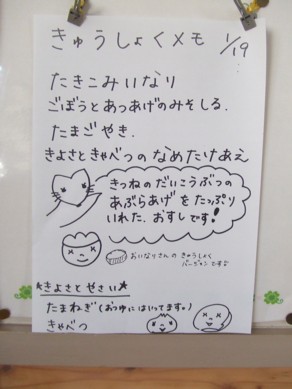 きゅうしょくメモ 1/19
たきこみいなり
ごぼうとあつあげのみそしる.
たまごやき.
きよさときゃべつのなめたけあえ
きつねのだいこうぶつの
あぶらあげをたっぷり
いれた、おすしです!
おいなりさんのきゅうしょく
バージョンです
*きよさとやさい*
たまねぎ(おつゆにはいってます。)
きゃべつ